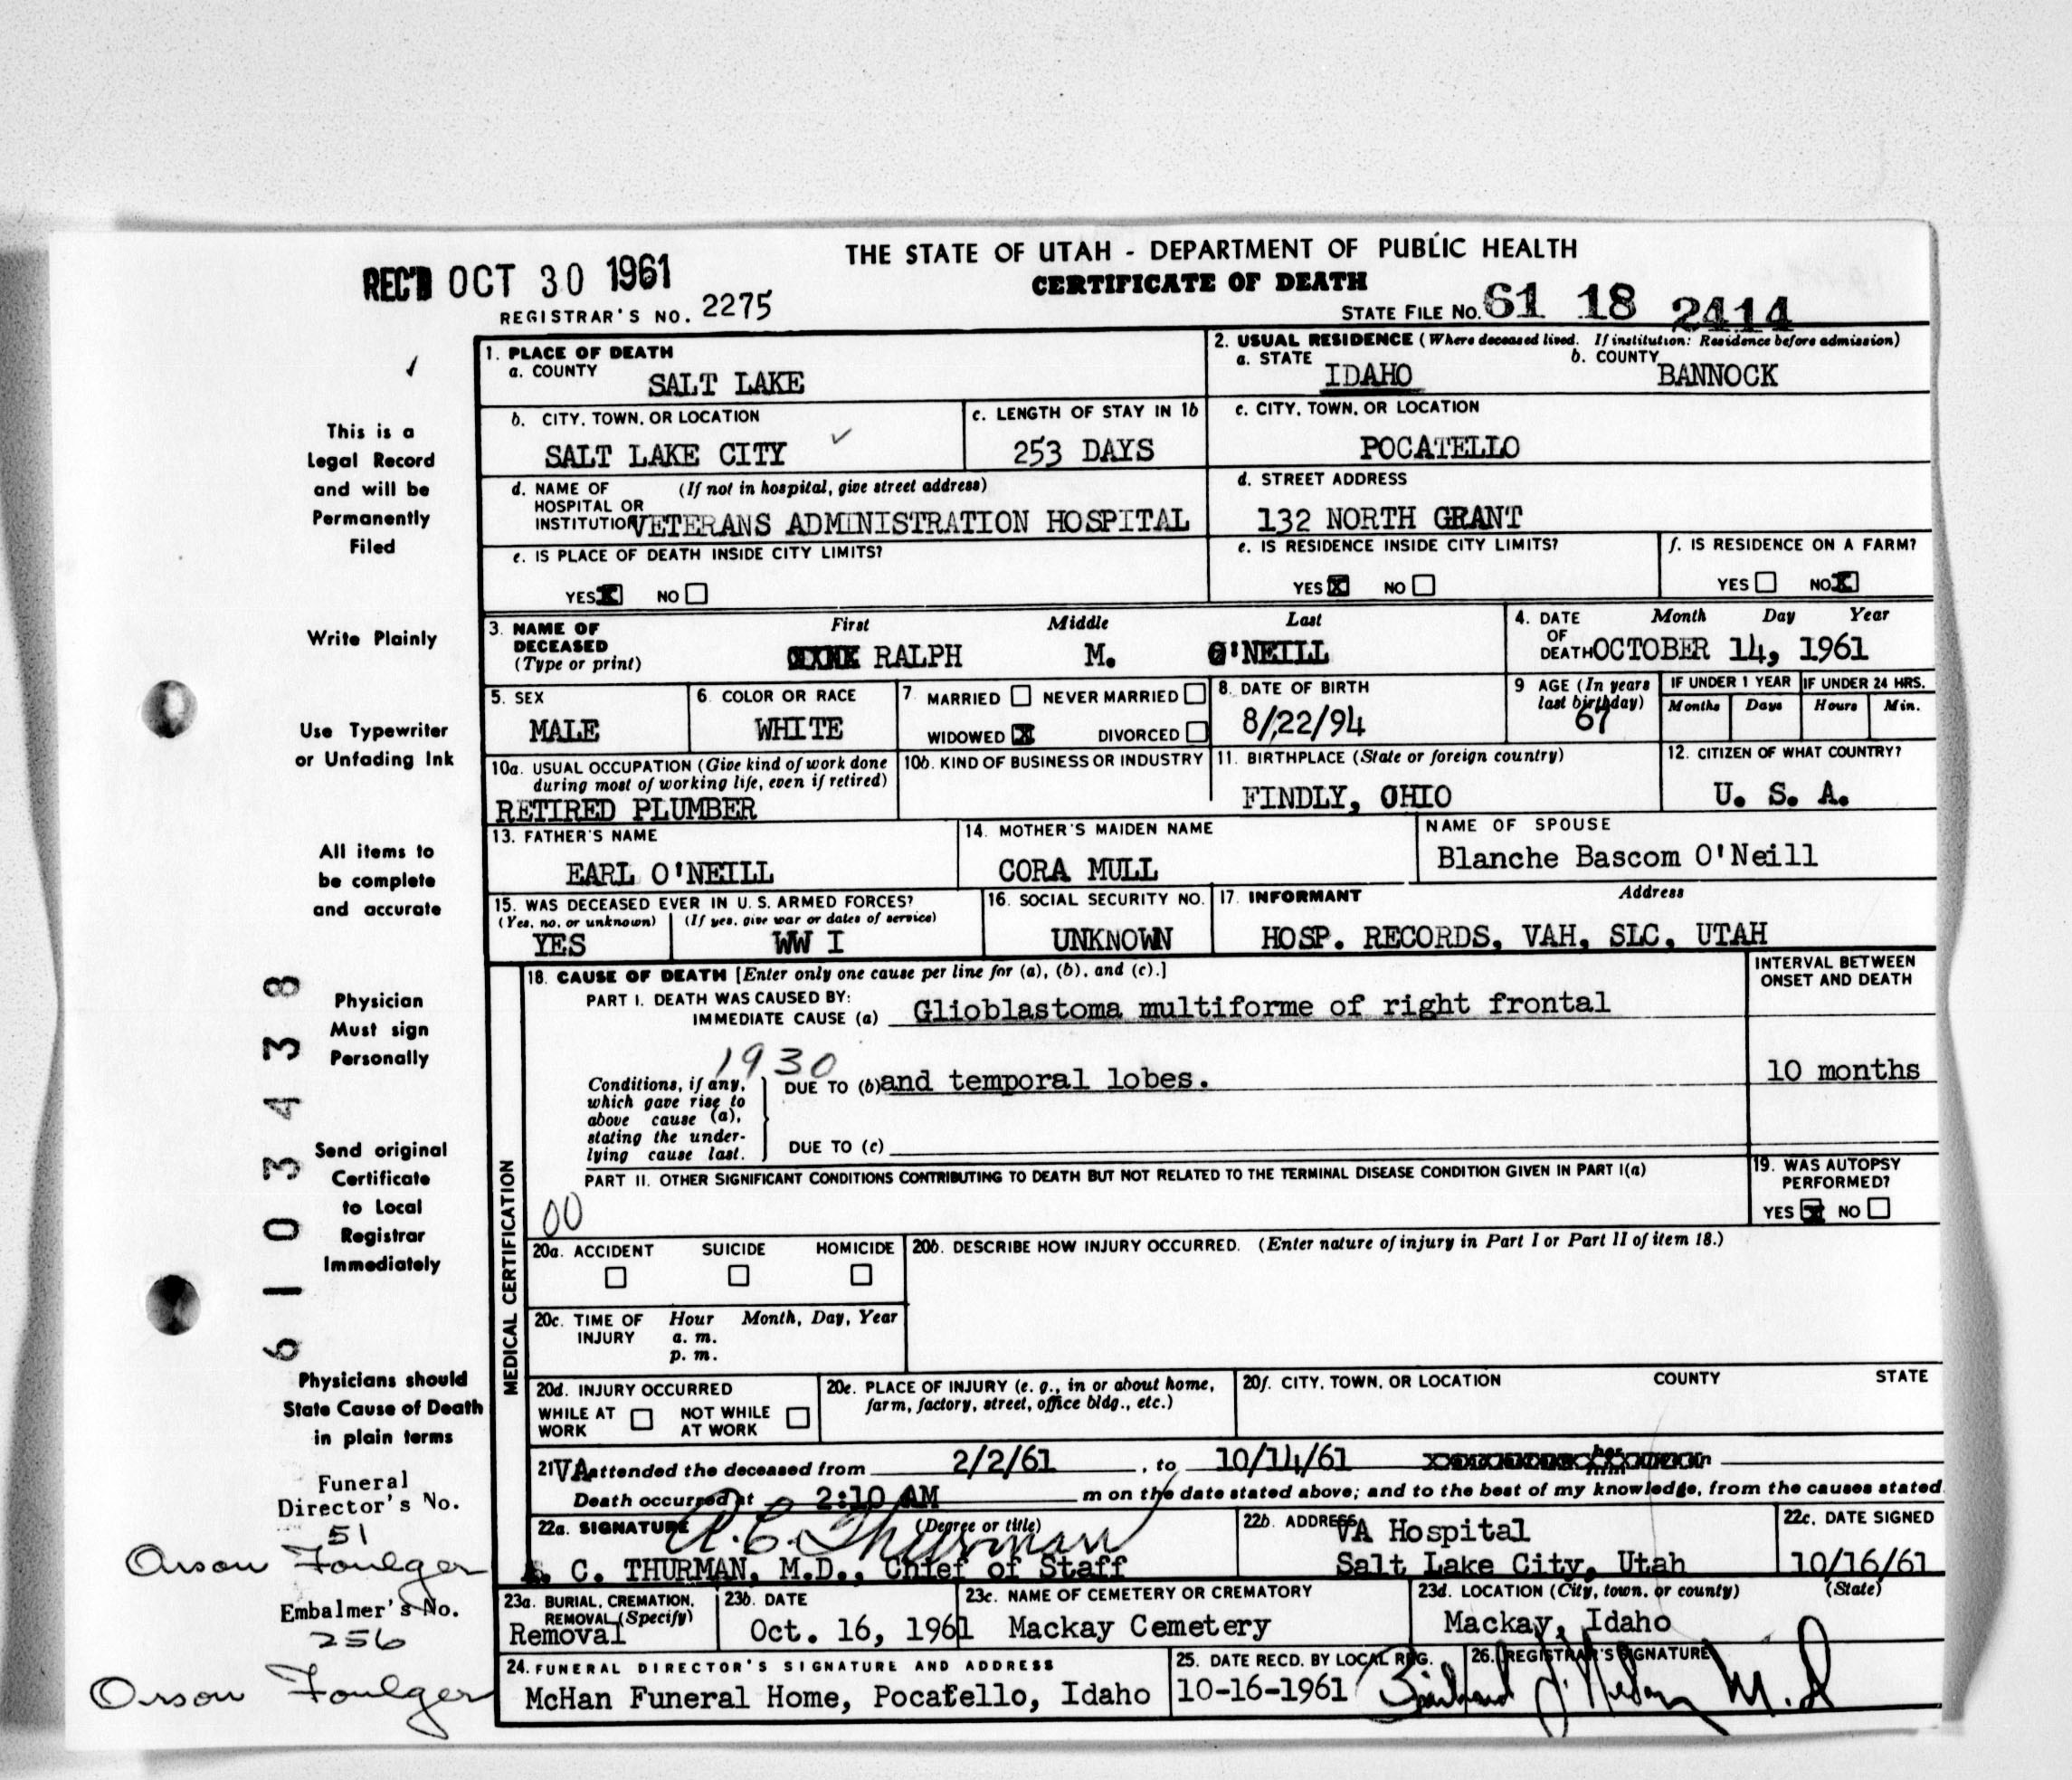 THE STATE OF UTAH - DEPARTMENT OF PUBLIC HEALTH
REC'D OCT 30 1961
CERTIFICATE OF DEATH
REGISTRAR'S NO. 2275
STATE FILE NO. 61 18 2414
This is a
Legal Record
and will be
Permanently
Filed
Write Plainly
Use Typewriter
or Unfading Ink
All items to
be complete
and accurate
Physician
Must sign
Personally
Send original
Certificate
to Local
Registrar
Immediately
Physicians should
State Cause of Death
in plain terms
6103438
Funeral
Director's No.
51
Orson Foulger
Embalmer's No.
256
Orson Foulger
1. PLACE OF DEATH
a. COUNTY
SALT LAKE
2. USUAL RESIDENCE (Where deceased lived. If institution: Residence before admission)
a. STATE IDAHO b. COUNTY BANNOCK
b. CITY, TOWN, OR LOCATION
SALT LAKE CITY
c. LENGTH OF STAY IN 1b
253 DAYS
c. CITY, TOWN, OR LOCATION
POCATELLO
d. NAME OF (If not in hospital, give street address)
HOSPITAL OR
INSTITUTION VETERANS ADMINISTRATION HOSPITAL
d. STREET ADDRESS
132 NORTH GRANT
e. IS PLACE OF DEATH INSIDE CITY LIMITS?
YES X NO
e. IS RESIDENCE INSIDE CITY LIMITS?
YES X NO
f. IS RESIDENCE ON A FARM?
YES NO X
3. NAME OF First Middle Last
DECEASED RALPH M. O'NEILL
(Type or print)
4. DATE Month Day Year
OF
DEATH OCTOBER 14, 1961
5. SEX
MALE
6. COLOR OR RACE
WHITE
7 MARRIED NEVER MARRIED
WIDOWED X DIVORCED
8. DATE OF BIRTH
8/22/94
9 AGE (In years
last birthday)
67
IF UNDER 1 YEAR
Months Days
IF UNDER 24 HRS.
Hours Min.
10a. USUAL OCCUPATION (Give kind of work done
during most of working life, even if retired)
RETIRED PLUMBER
10b. KIND OF BUSINESS OR INDUSTRY
11. BIRTHPLACE (State or foreign country)
FINDLY, OHIO
12. CITIZEN OF WHAT COUNTRY?
U. S. A.
13. FATHER'S NAME
EARL O'NEILL
14. MOTHER'S MAIDEN NAME
CORA MULL
NAME OF SPOUSE
Blanche Bascom O'Neill
15. WAS DECEASED EVER IN U. S. ARMED FORCES?
(Yes, no, or unknown) (If yes, give war or dates of service)
YES WW I
16. SOCIAL SECURITY NO.
UNKNOWN
17. INFORMANT Address
HOSP. RECORDS, VAH, SLC, UTAH
MEDICAL CERTIFICATION
18. CAUSE OF DEATH [Enter only one cause per line for (a), (b), and (c).]
INTERVAL BETWEEN
ONSET AND DEATH
PART I. DEATH WAS CAUSED BY:
IMMEDIATE CAUSE (a) Glioblastoma multiforme of right frontal
1930
Conditions, if any,
which gave rise to
above cause (a),
stating the under-
lying cause last.
DUE TO (b) and temporal lobes.
10 months
DUE TO (c)
PART II. OTHER SIGNIFICANT CONDITIONS CONTRIBUTING TO DEATH BUT NOT RELATED TO THE TERMINAL DISEASE CONDITION GIVEN IN PART I(a)
00
19. WAS AUTOPSY
PERFORMED?
YES X NO
20a. ACCIDENT SUICIDE HOMICIDE
20b. DESCRIBE HOW INJURY OCCURRED. (Enter nature of injury in Part I or Part II of item 18.)
20c. TIME OF Hour Month, Day, Year
INJURY a. m.
p. m.
20d. INJURY OCCURRED
WHILE AT NOT WHILE
WORK AT WORK
20e. PLACE OF INJURY (e. g., in or about home,
farm, factory, street, office bldg., etc.)
20f. CITY, TOWN, OR LOCATION COUNTY STATE
21 VA attended the deceased from 2/2/61, to 10/14/61
Death occurred at 2:10 AM m on the date stated above; and to the best of my knowledge, from the causes stated.
22a. SIGNATURE (Degree or title)
A. C. Thurman
A. C. THURMAN, M.D., Chief of Staff
22b. ADDRESS
VA Hospital
Salt Lake City, Utah
22c. DATE SIGNED
10/16/61
23a. BURIAL, CREMATION,
REMOVAL (Specify)
Removal
23b. DATE
Oct. 16, 1961
23c. NAME OF CEMETERY OR CREMATORY
Mackay Cemetery
23d. LOCATION (City, town, or county) (State)
Mackay, Idaho
24. FUNERAL DIRECTOR'S SIGNATURE AND ADDRESS
McHan Funeral Home, Pocatello, Idaho
25. DATE RECD. BY LOCAL REG.
10-16-1961
26. REGISTRAR'S SIGNATURE
M.D